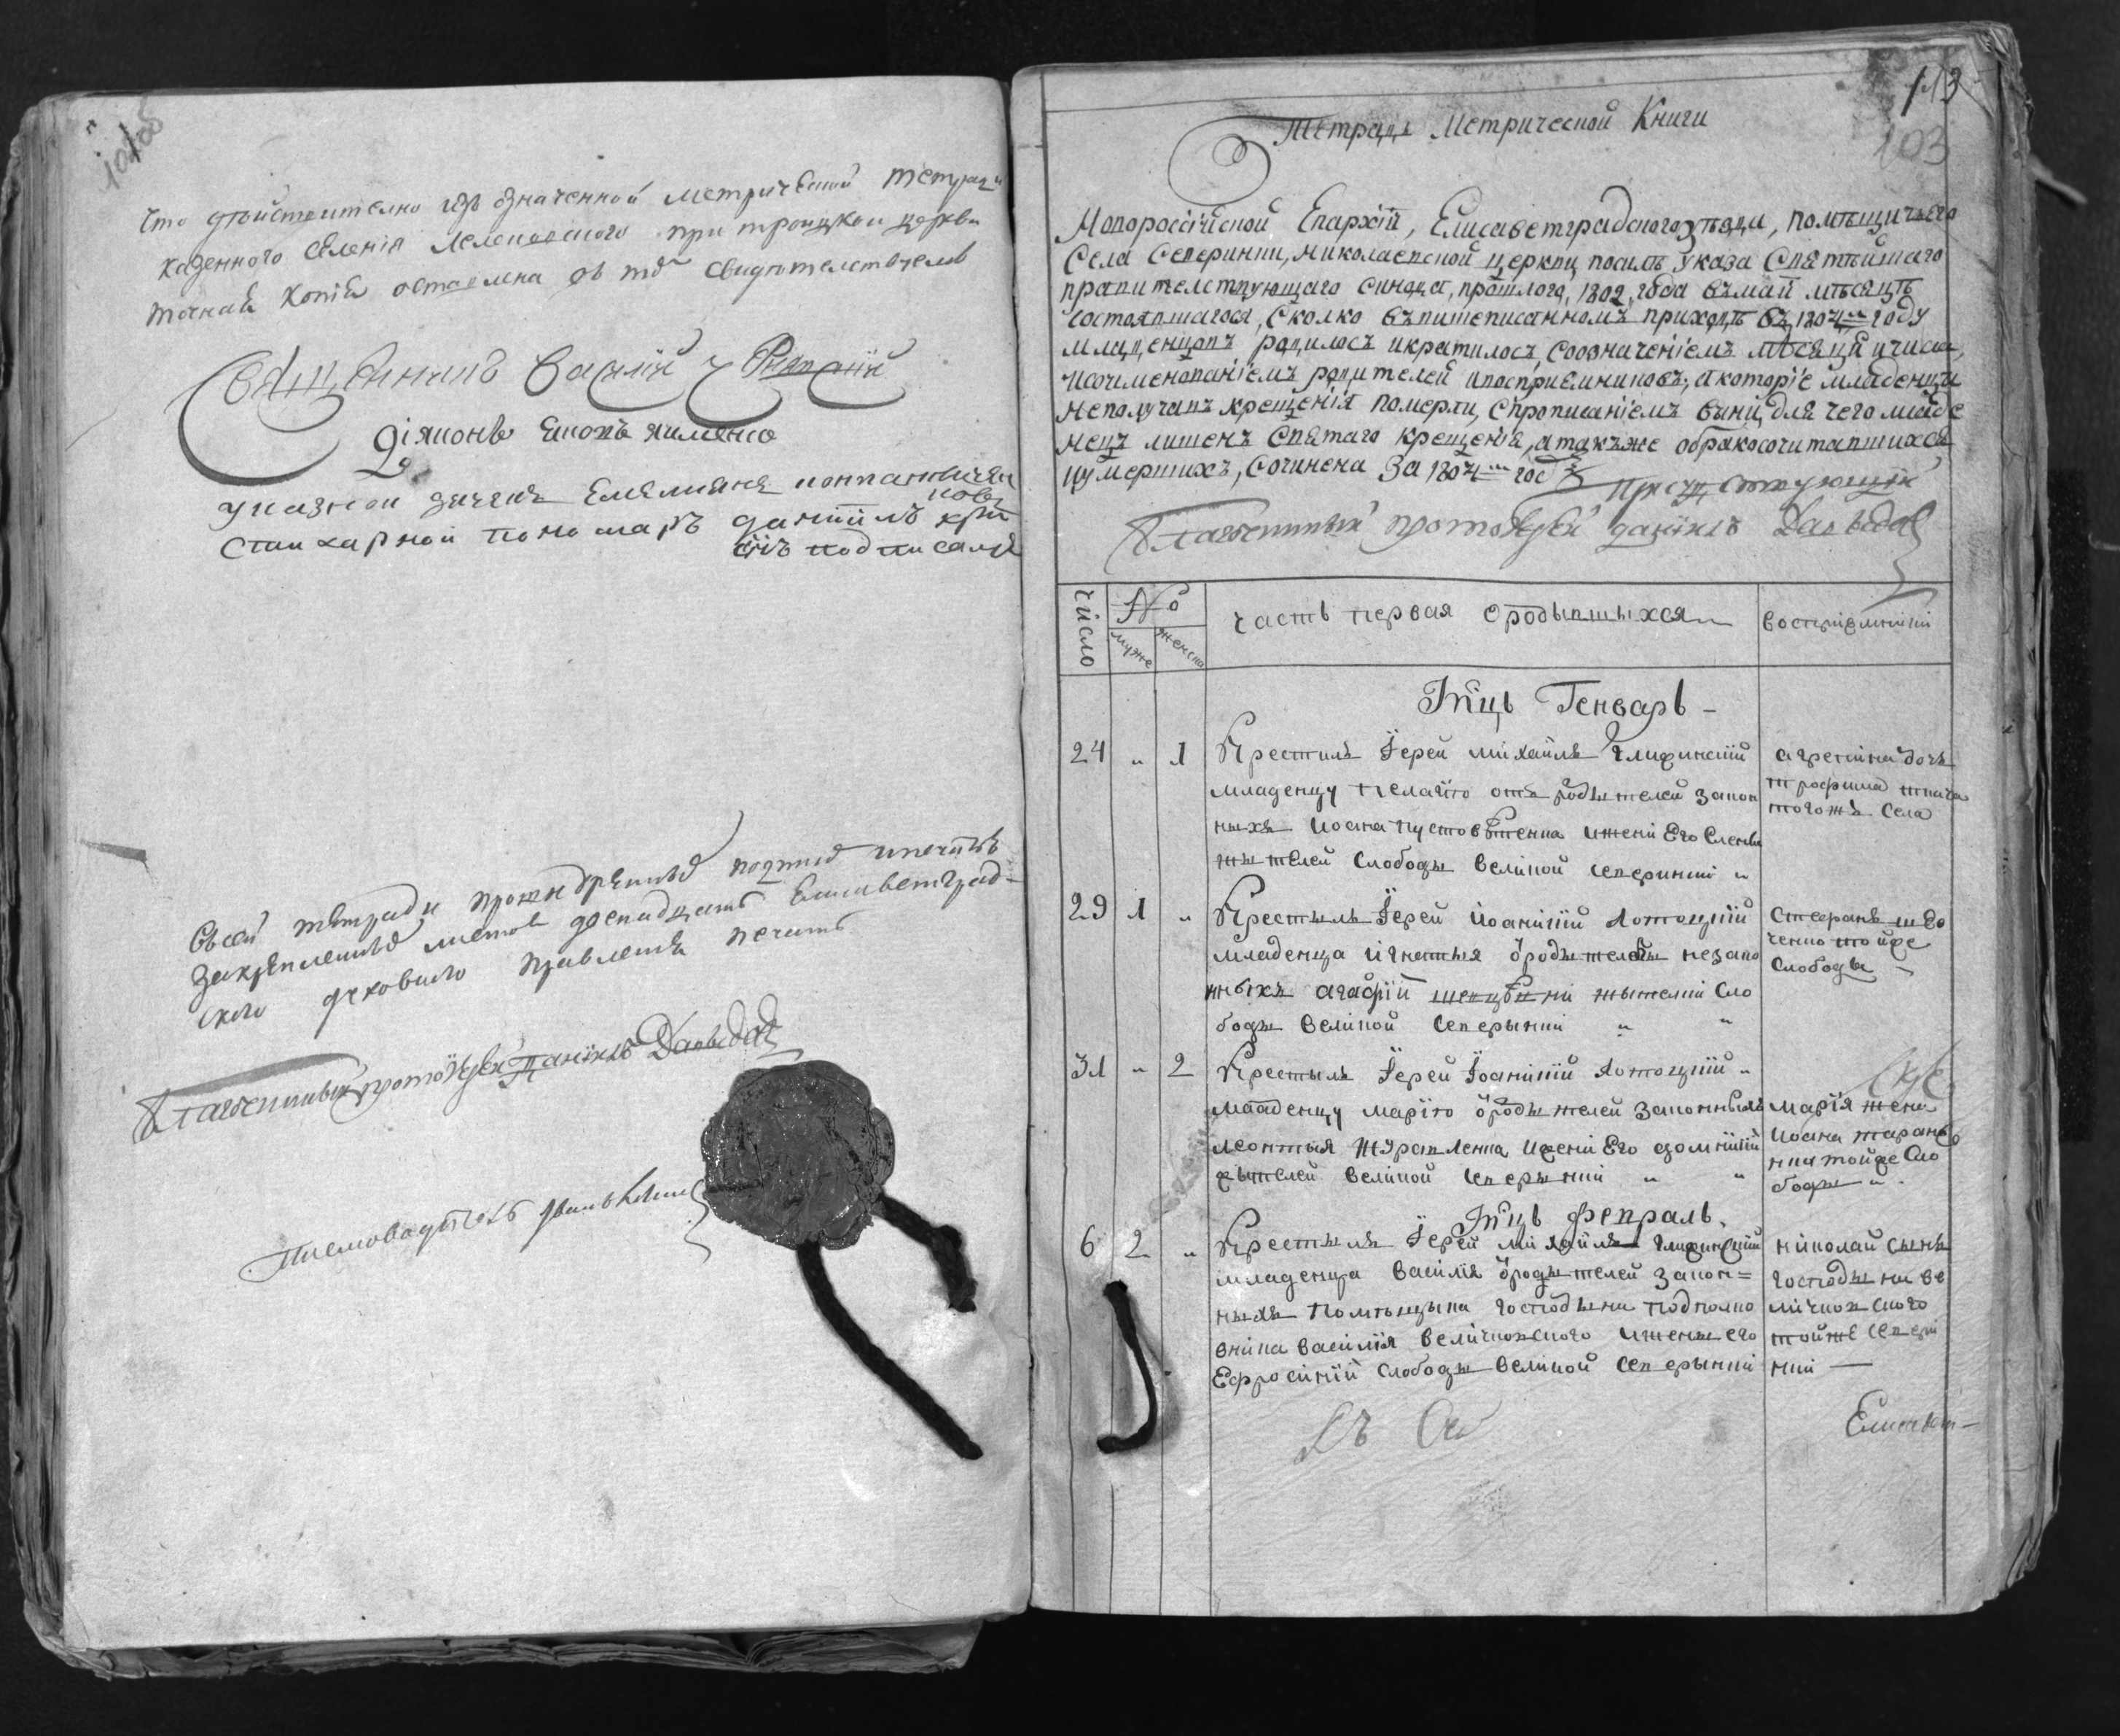 Что дѣйствително изъ означенной метрической тетради
казеннаго селенія Лелековского при троицкой церкви
точная копія оставлена въ томъ свидѣтелствуемъ
Священникъ Василій
Діяконъ Яковъ Якименко
указной дячекъ Емелиянъ
Стихарной пономаръ даніилъ
подписался
Въ сей тетради прошнуренной подписью и печатью
закрѣпленной листовъ двенадцать Елисаветград-
ского духовного правленія печать
Благочинный протоіерей Даніилъ Давыдовъ
Писмоводитель Иванъ
113
103
Тетрадь Метрической Книги
Новороссійской Епархіи, Елисаветградского уѣзда, помѣщичьего
Села Северинки, Николаевской церкви посилѣ указа Святѣйшаго
правителствующаго Синода, прошлого, 1802, года въ май мѣсяцѣ
состоявшагося, Сколко въ вишеписанномъ приходѣ въ 1804м году
младенцовъ родилось и кратилось, Соозначеніемъ мѣсяца и числа,
и соименованіемъ родителей и воспріемниковъ; а которіе младенци
неполучавъ крещенія померли, Спрописаніемъ вины для чего младе
нецъ лишенъ Святаго крещенія, а такъ же обракосочитавшихся
и умершихъ, Сочинена За 1804й год
Присутствующій
Благочинный протоіерей Даніилъ Давыдовъ
Число № муже женска Часть первая О родывшыхся воспріемники
Мцъ Генварь
24 " 1 Крестилъ Іерей михаилъ Глифинскій
младенцу Пелагію отъ родытелей закон
ныхъ Иоана пустовѣтенка и жени Его Елени
жытелей Слободы великой Северинки "
агрепина дочъ
трофима ткача
тогожъ Села
29 1 " Крестылъ Іерей Иоаникій Лотоцкій
младенца игнатыя Ородытелей незако
нныхъ агафіи шевцѣвни жытелки Сло
боды великой Северынки " "
Стефанъ шев
ченко тойже
Слободы
31 " 2 Крестылъ Іерей Іоаникій Лотоцкій "
младенцу марію Ородытелей законныхъ
леонтыя журавленка и жени Его домникіи
жытелей великой Северынки " "
марія жена
Иоана таране
нка тойже Сло
боды "
Мцъ февраль.
6 2 " Крестылъ Іерей михаилъ Глифинскій
младенца василія Ородытелей закон=
ныхъ Помѣщыка Господына подполко
вника василія величковского и жены его
Ефросиніи Слободы великой Северынки
николай сынъ
Господына ве
личковского
тойже Севери
нки —
Елисавет-